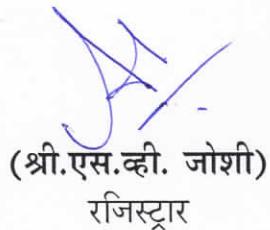 (श्री.एस.व्ही. जोशी)
रजिस्ट्रार